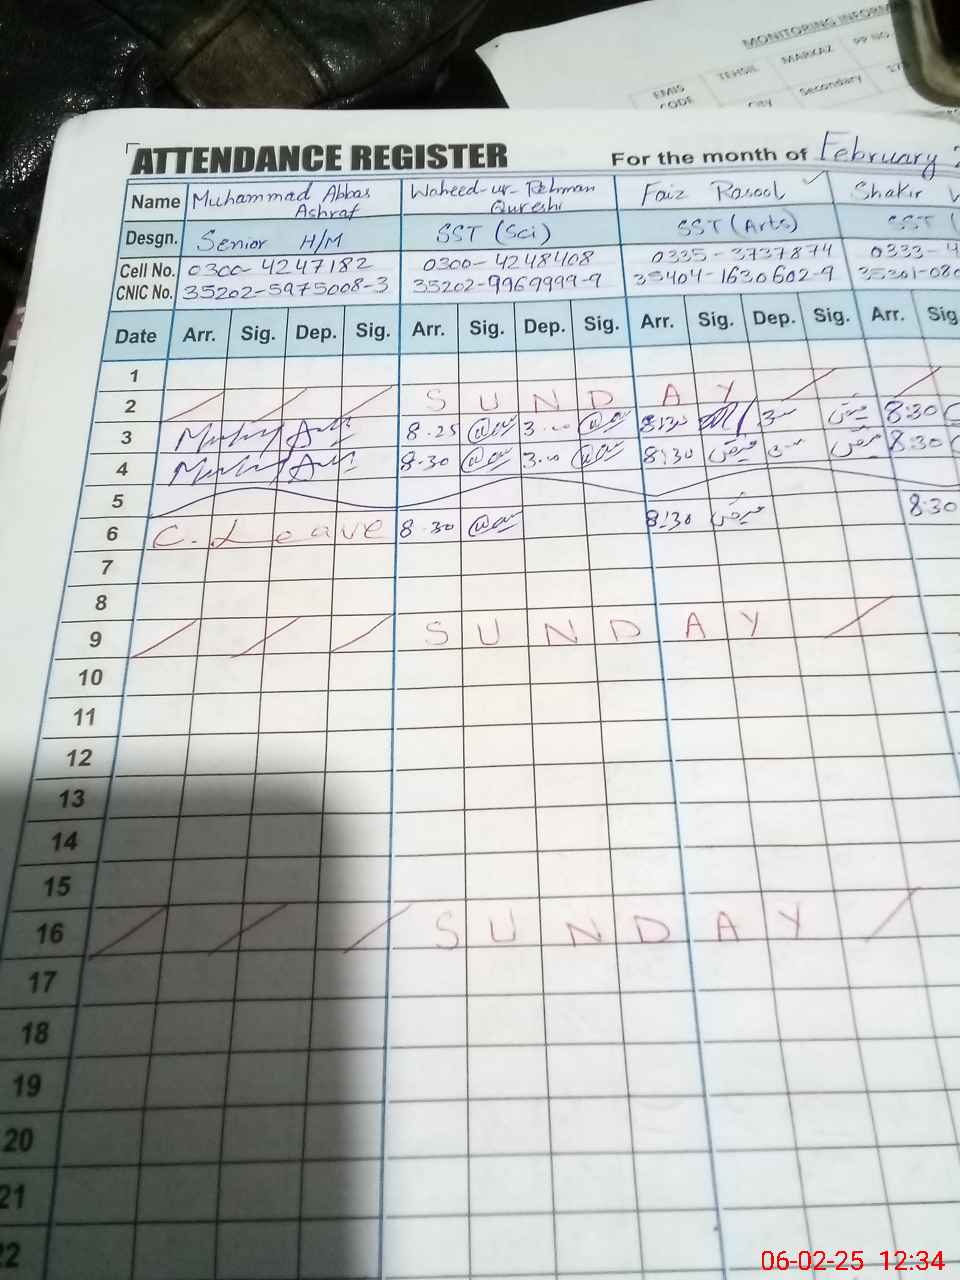 MONITORING INFORM
EMIS CODE TEHSIL MARKAZ PP NO.
City Secondary
ATTENDANCE REGISTER For the month of February
Name Muhammad Abbas Ashraf Waheed-ur-Rehman Qureshi Faiz Rasool Shakir
Desgn. Senior H/M SST (Sci) SST (Arts) SST (
Cell No. 0300-4247182 0300-4248408 0335-3737874 0333-4
CNIC No. 35202-5975008-3 35202-9969999-9 35404-1630602-9 35301-080
Date Arr. Sig. Dep. Sig. Arr. Sig. Dep. Sig. Arr. Sig. Dep. Sig. Arr. Sig
1
2 S U N D A Y
3 8.25 3.00 8:30 8:30
4 8.30 3.00 8:30 8:30
5
6 C. Leave 8.30 8:30 8:30
7
8
9 S U N D A Y
10
11
12
13
14
15
16 S U N D A Y
17
18
19
20
21
22
06-02-25 12:34